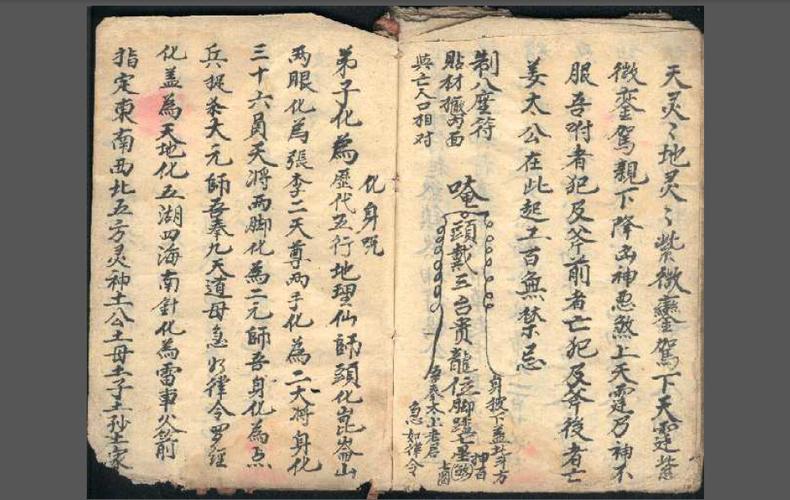 天灵〻地灵〻紫微鑾駕下天霆紫
微鑾駕親下降凶神惡煞上天霆乃神不
服吾咐者犯及斧前者亡犯及斧後者亡
姜太公在此起工百無禁忌
制八座符
貼材𢹂丙面
與亡人口相对
唵
頭戴三台贵龍位脚踏七星
身披下盖北斗方
押百
煞
急奉太上老君
急如律令
化身咒
弟子化為歷代五行地理仙師頭化崑崙山
両眼化為張李二天尊両手化為二大将身化
三十六員天将両脚化為二元師吾身化為
兵捉大元師吾奉九天道母急如律令罗經
化盖為天地化五湖四海南針化為雷車斧前
指定東南西北五方灵神土公土母土子土孙土家